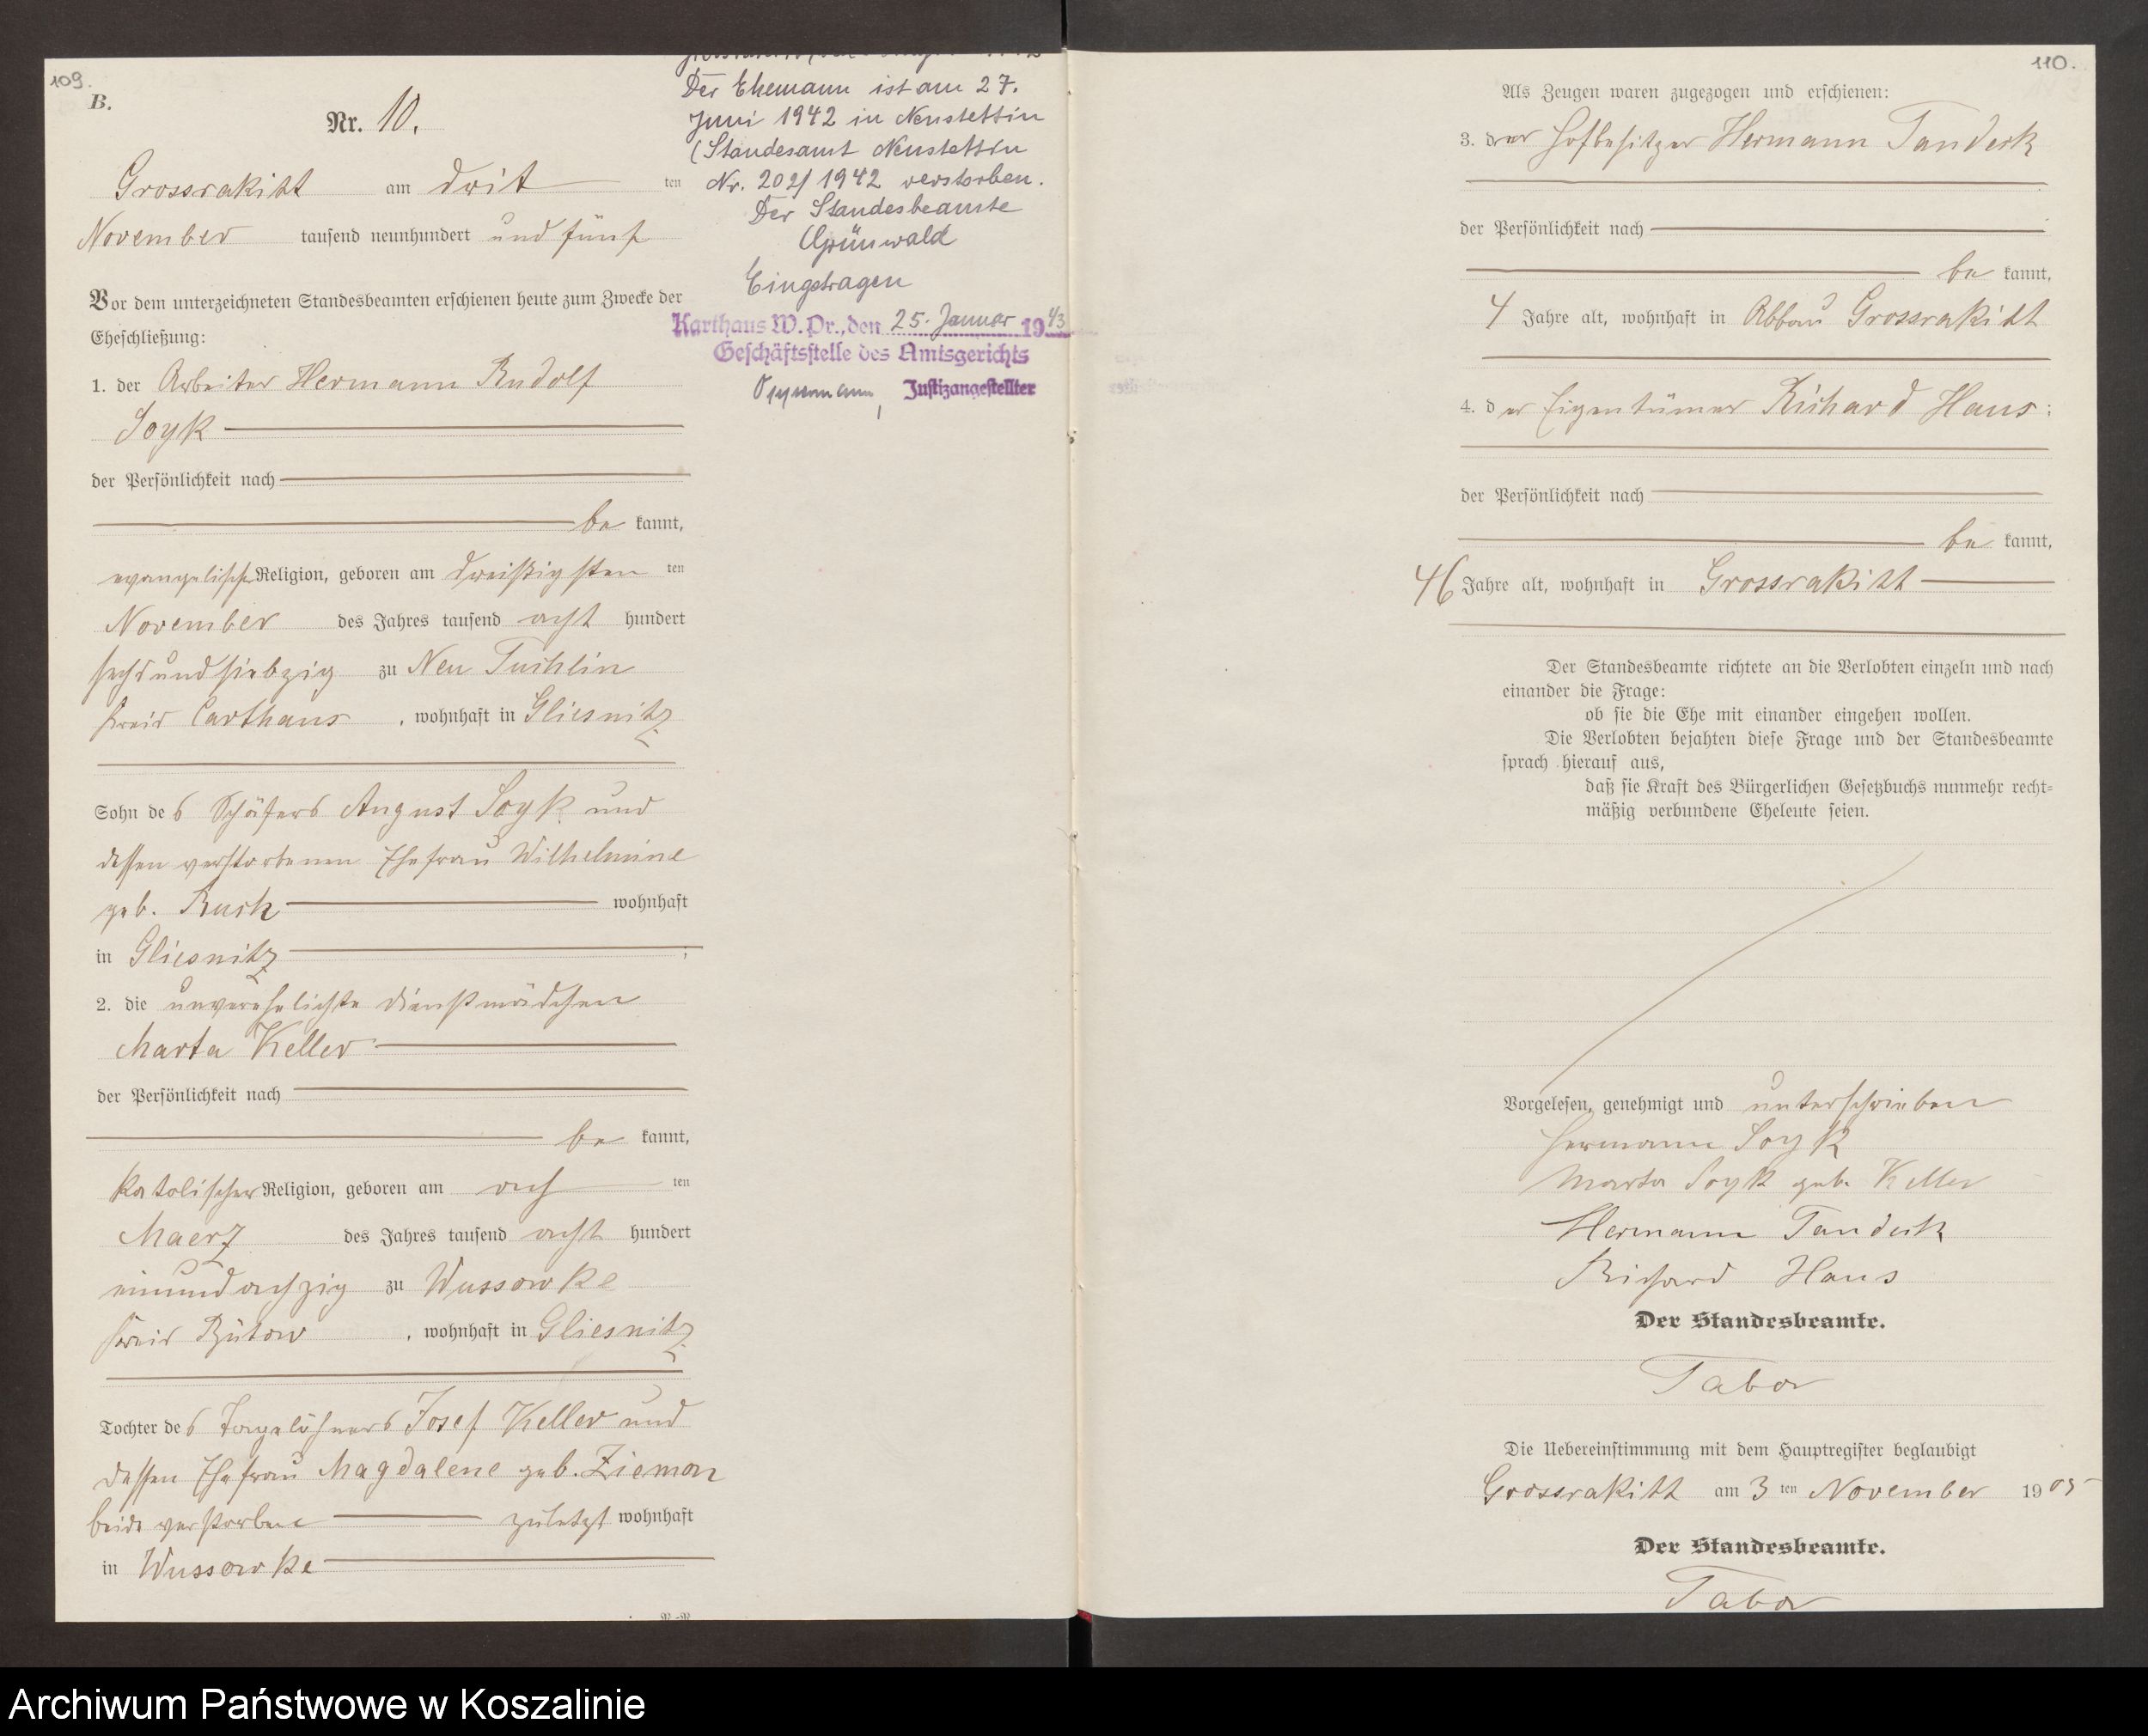 109.
B.
Nr. 10.
Grossrakitt am drit ten
November tausend neunhundert und fünf
Vor dem unterzeichneten Standesbeamten erschienen heute zum Zwecke der
Eheschließung:
1. der Arbeiter Hermann Rudolf
Soyk
der Persönlichkeit nach
be kannt,
evangelischer Religion, geboren am dreißigsten ten
November des Jahres tausend acht hundert
sechsundsiebzig zu Neu Tuchlin
Kreis Carthaus, wohnhaft in Gliesnitz
Sohn des Schäfers August Soyk und
dessen verstorbenen Ehefrau Wilhelmine
geb. Rusch wohnhaft
in Gliesnitz;
2. die unverehelichte Dienstmädchen
Marta Keller
der Persönlichkeit nach
be kannt,
katolischer Religion, geboren am ach ten
Maerz des Jahres tausend acht hundert
einundachzig zu Wussowke
Kreis Bütow, wohnhaft in Gliesnitz
Tochter des Tagelöhners Josef Keller und
dessen Ehefrau Magdalene geb. Ziemon
beide verstorben zuletzt wohnhaft
in Wussowke
Der Ehemann ist am 27.
Juni 1942 in Neustettin
(Standesamt Neustettin
Nr. 202/1942 verstorben.
Der Standesbeamte
Grünwald
Eingetragen
Karthaus W. Pr., den 25. Januar 1943
Geschäftsstelle des Amtsgerichts
Justizangestellter
110.
Als Zeugen waren zugezogen und erschienen:
3. der Hofbesitzer Hermann Tandeck
der Persönlichkeit nach
be kannt,
4 Jahre alt, wohnhaft in Abbau Grossrakitt
4. der Eigentümer Richard Haus:
der Persönlichkeit nach
be kannt,
46 Jahre alt, wohnhaft in Grossrakitt
Der Standesbeamte richtete an die Verlobten einzeln und nach
einander die Frage:
ob sie die Ehe mit einander eingehen wollen.
Die Verlobten bejahten diese Frage und der Standesbeamte
sprach hierauf aus,
daß sie Kraft des Bürgerlichen Gesetzbuchs nunmehr recht-
mäßig verbundene Eheleute seien.
Vorgelesen, genehmigt und unterschrieben
Hermann Soyk
Marta Soyk geb. Keller
Hermann Tandeck
Richard Haus
Der Standesbeamte.
Tabor
Die Uebereinstimmung mit dem Hauptregister beglaubigt
Grossrakitt am 3 ten November 1905
Der Standesbeamte.
Tabor
Archiwum Państwowe w Koszalinie